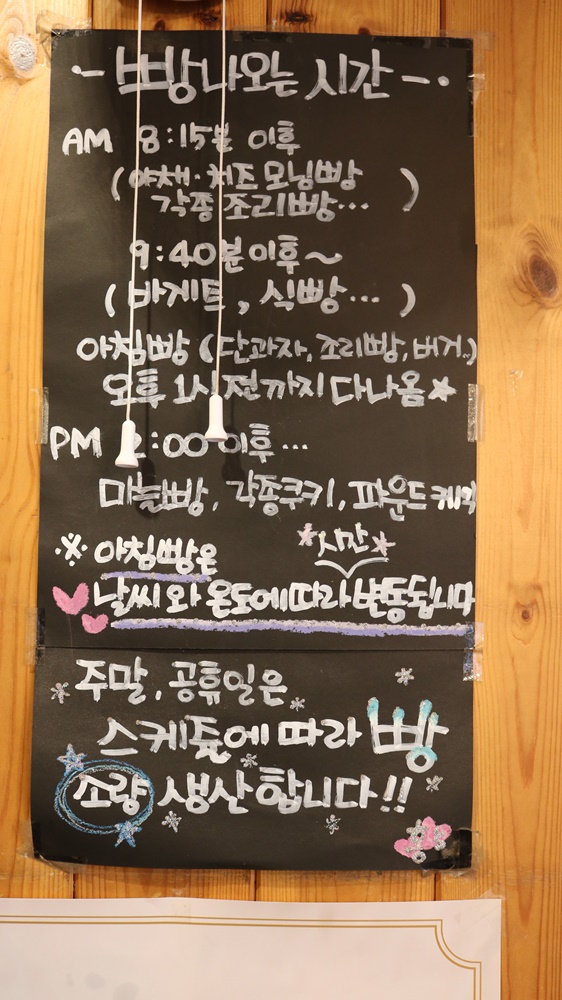 - 빵 나오는 시간 -·
AM 8:15분 이후
(야채·치즈 모닝빵
각종 조리빵... )
9:40분 이후~
(바게트, 식빵... )
아침빵 (단과자, 조리빵, 버거..)
오후 1시 전까지 다나옴★
PM 2:00 이후...
마늘빵, 각종쿠키, 파운드케익
※ 아침빵은 *시간*
날씨와 온도에따라 변동됩니다
주말, 공휴일은
스케쥴에 따라 빵
소량 생산합니다!!